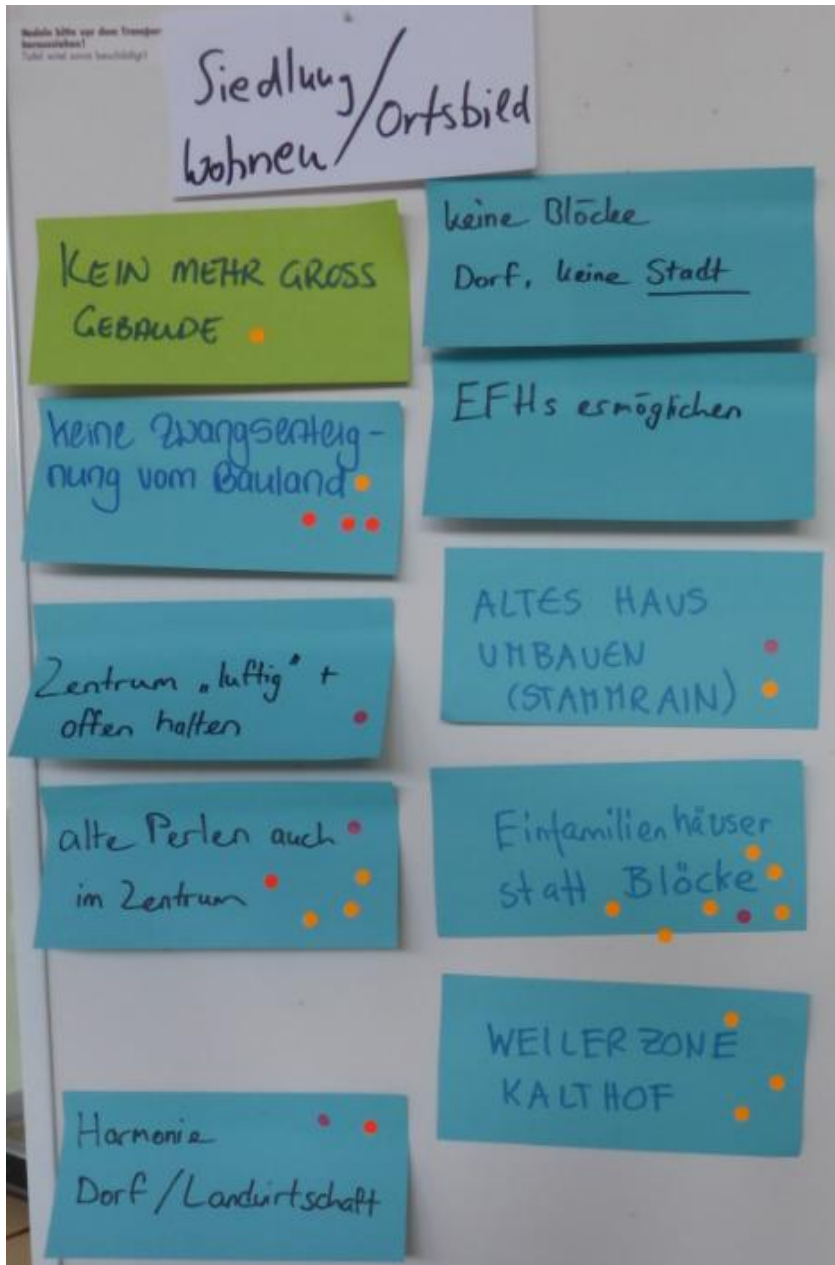 Nadeln bitte vor dem Transport
herausziehen!
Tafel wird sonst beschädigt!
Siedlung/
Wohnen/Ortsbild
KEIN MEHR GROSS
GEBAUDE
keine Zwangsenteig-
nung vom Bauland
Zentrum „luftig" +
offen halten
alte Perlen auch
im Zentrum
Harmonie
Dorf/Landwirtschaft
keine Blöcke
Dorf, keine Stadt
EFHs ermöglichen
ALTES HAUS
UMBAUEN
(STAMMRAIN)
Einfamilienhäuser
statt Blöcke
WEILERZONE
KALTHOF